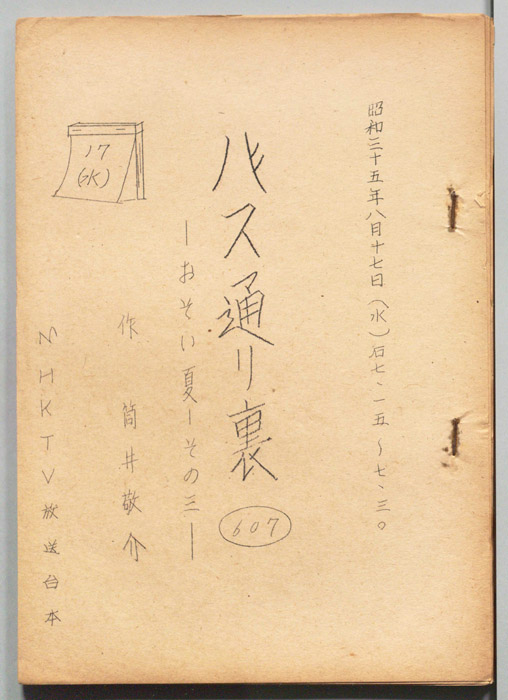 昭和三十五年八月十七日(水)后七・一五〜七・三〇
バス通り裏
607
―おそい夏―その三―
作 筒井敬介
17
(水)
NHKTV放送台本